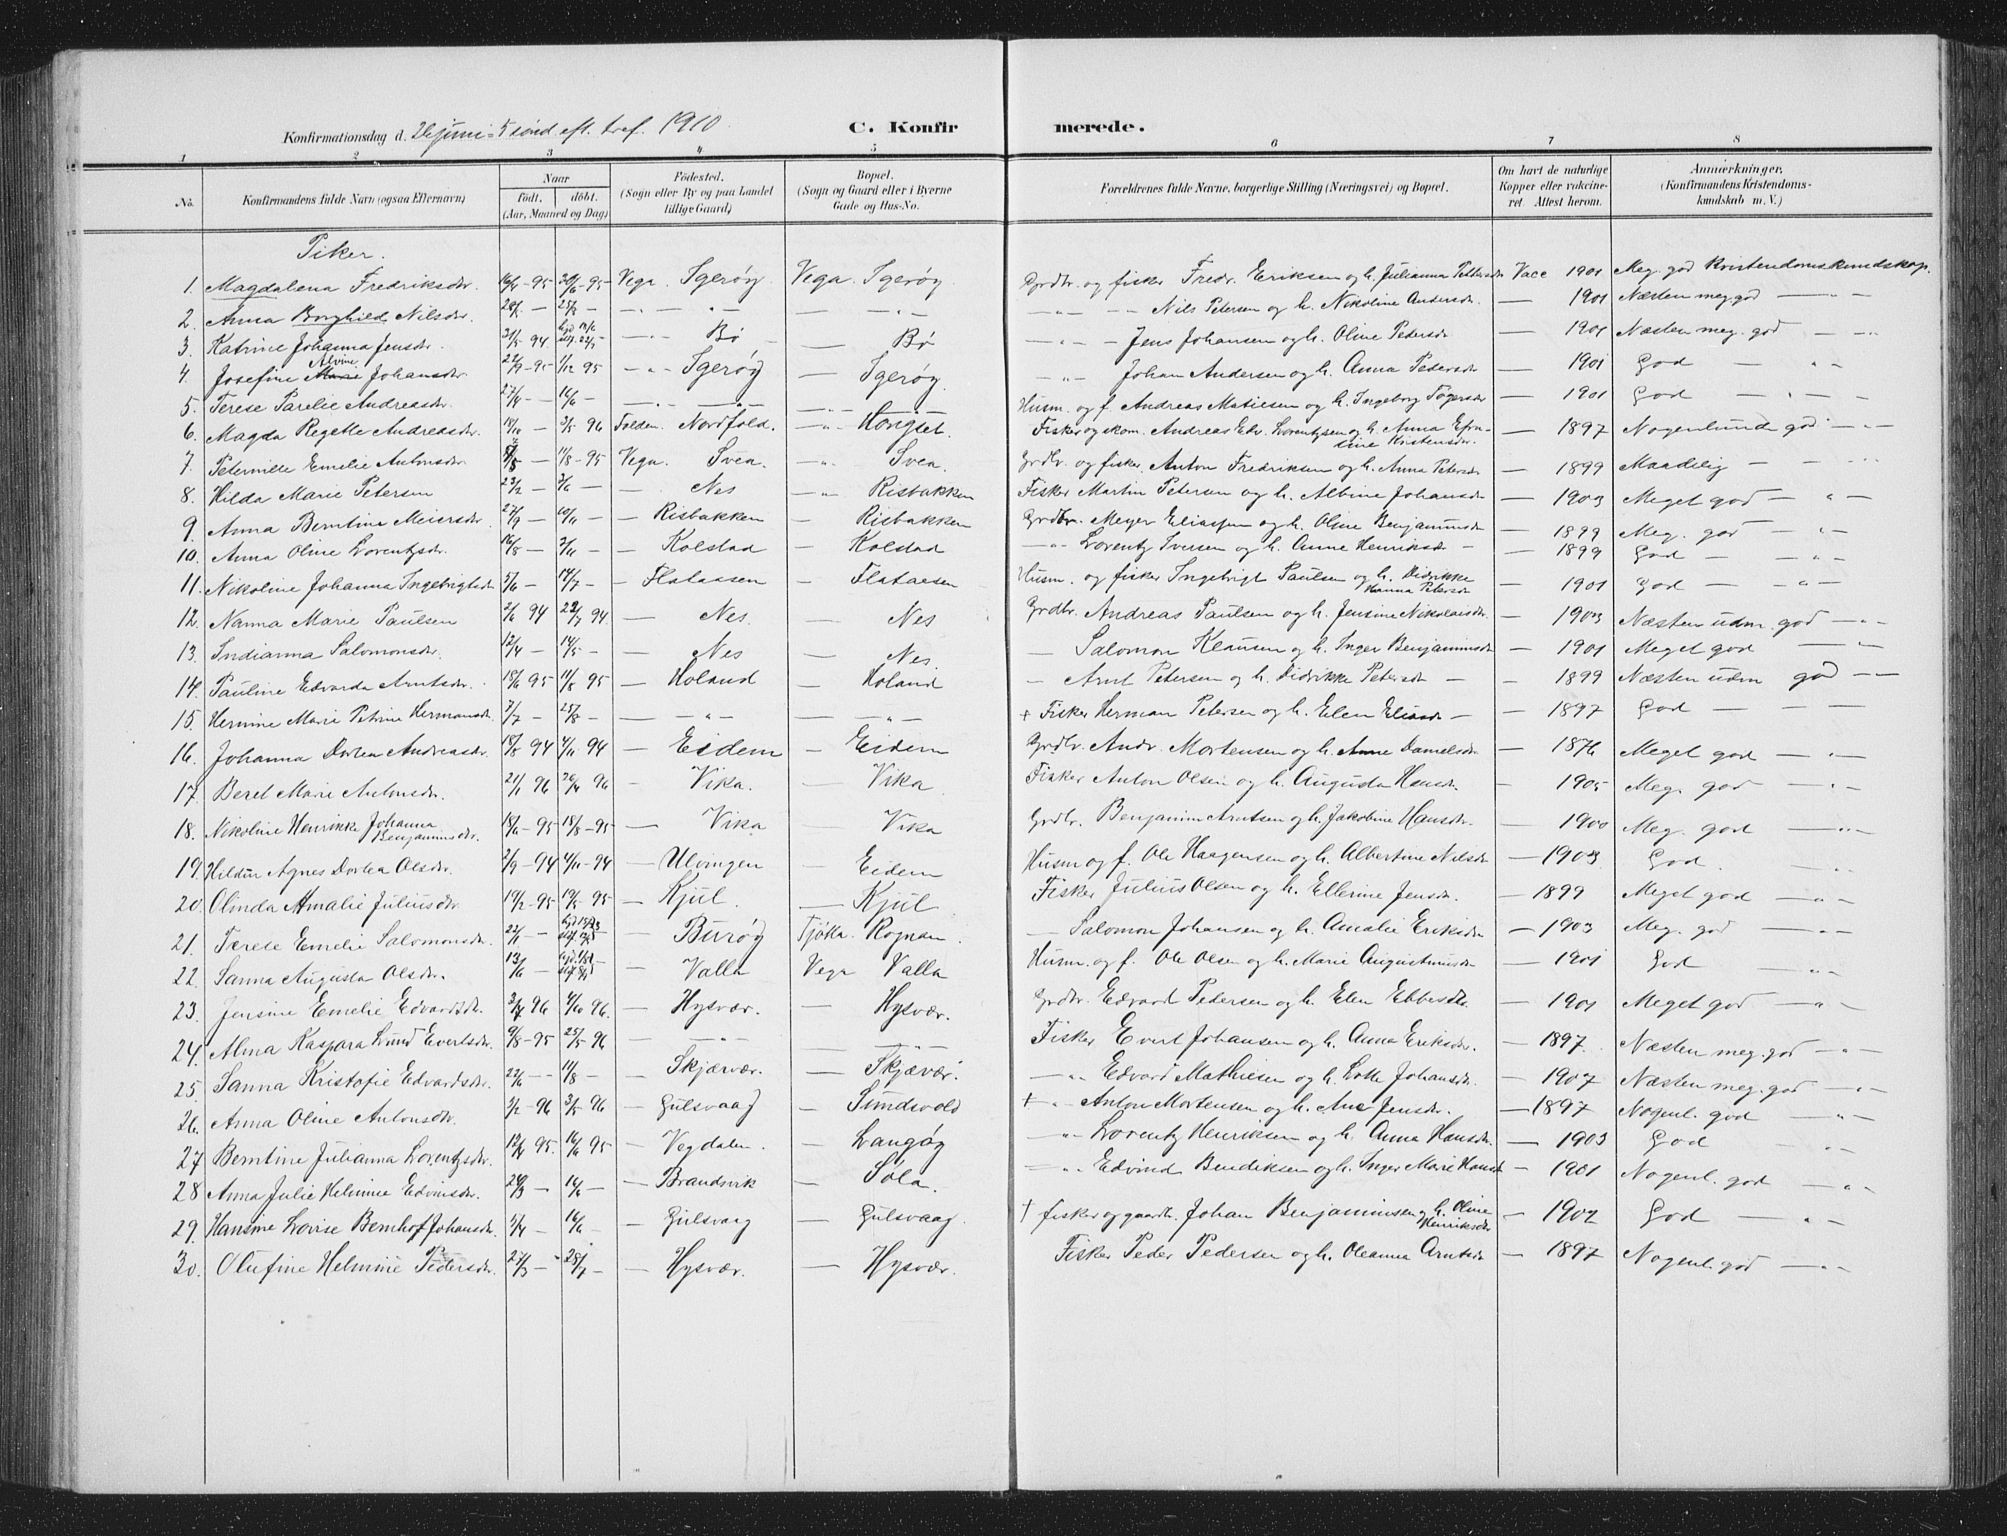 Konfirmationsdag d. 26 juni = 5 sönd eft. tref. 1910
C. Konfirmerede.
1 2 3 4 5 6 7 8
No.
Konfirmandens fulde Navn (ogsaa Efternavn)
Naar födt. döbt. (Aar, Maaned og Dag)
Födested. (Sogn eller By og paa Landet tillige Gaard)
Bopæl. (Sogn og Gaard eller i Byerne Gade og Hus-No.
Forældrenes fulde Navne, borgerlige Stilling (Næringsvei) og Bopæl.
Om havt de naturlige Kopper eller vakcineret. Attest herom.
Anmærkninger. (Konfirmandens Kristendomskundskab m. V.)
Piker.
1. Magdalena Fredriksdr. 95 95 Vega Igerøy. Vega. Igerøy. Grdbr. og fisker Fredr. Eriksen og h. Julianna Pettersdr Vacc 1901 Meg. god Kristendomskundskap.
2. Anna Borghild Nilsdr. — — — " — — " — — " — Nils Petersen og h. Nikoline Andersdr. — 1901 Næsten meg. god — " —
3. Katrine Johanna Jensdr. 94 — " — Bø — Bø — " — Jens Johansen og h. Oline Pedersdr — 1901 Næsten meg. god — "
4. Josefine Alvine Johansdr. 22/9 - 95 1/12 95 — " — Igerøy — Igerøy. — " — Johan Andersen og h. Anna Pedersdr — 1901 God — "
5. Terese Parelie Andreasdr. 27/4 — 16/6 — — " — — " — Husm. og f. Andreas Matiesen og h. Ingeborg Tøgersdr — 1901 God — "
6. Magda Regette Andreasdr. — 3/5 96 Folden. Nordfold. — " — Hongset. Fisker og økon. Andreas Edv. Lorentzsen og h. Anna Efraline Kristensdr. — 1897 Nogenlunde god — " —
7. Peternille Emelie Antonsdr. — 11/8 - 95 Vega. Svea. — " — Svea. Grdbr. og fisker Anton Fredriksen og h. Anna Petersdr — 1899 Maadelig — "
8. Hilda Marie Petersen 23/2 — 3/6 — — Nes — " — Risbakken Fisker Martin Petersen og h. Albine Johansdr — 1903 Meget god — " —
9. Anna Berntine Meiersdr. 27/9 — 10/11 — — Risbakken — Risbakken Grdbr. Meyer Eliassen og h. Oline Benjaminsdr — 1899 Meg. god — "
10. Anna Oline Lorentzsdr. 16/8 — 2/11 — — Kolstad — Kolstad — " — Lorentz Iversen og h. Anne Henriksdr — — 1899 God — "
11. Nikoline Johanna Ingebrigtsdr 5/6 — 14/7 — — Flataasen — Flataasen Husm. og fisker Ingebrigt Paulsen og h. Didrikke Hanna Petersdr — 1901 God — "
12. Nanna Marie Paulsen 2/6 94 22/7 94 — Nes. — Nes Grdbr. Andreas Paulsen og h. Jensine Nikolaisdr. — 1903 Næsten udm. god — " —
13. Indianna Salomonsdr. 12/4 — 14/5 — — Nes — Nes. — Salomon Klausen og h. Inger Benjaminsdr — 1901 Meget god — "
14. Pauline Edvarda Arntsdr. 15/6 95 11/8 95 — Holand — Holand — Arnt Petersen og h. Didrikke Petersdr — — 1899 Næsten udm god — —
15. Hermine Marie Petrine Hermansdr. 7/7 — 25/8 — — " — — " — + Fisker Herman Petersen og h. Elen Eliasdr — — 1897 God — — " —
16. Johanna Dortea Andreasdr. 18/8 94 4/11 94 — Eidem — Eidem Grdbr. Andr. Mortensen og h. Anne Danielsdr. — 1876 Meget god — "
17. Beret Marie Antonsdr. 21/1 96 26/4 96 — Vika. — Vika Fisker Anton Olsen og h. Augusta Hansdr. — 1905 Meg. god — "
18. Nikoline Henrikke Johanna Benjaminsdr. 15/6 - 95 18/8 - 95 — Vika Vika Grdbr. Benjamin Arntsen og h. Jakobine Hansdr. — 1900 Meg. god — "
19. Hildur Agnes Dortea Olsdr. 2/9 - 94 4/11 - 94 — Ulvingen — Eidem Husm og f. Ole Haagensen og h. Albertine Nilsdr — 1903 God. "
20. Olinda Amalie Juliusdr. 19/2 - 95 19/5 - 95 — Kjul. — Kjul Fisker Julius Olsen og h. Ellerine Jensdr. — 1899 Meget god — " —
21. Terese Emelie Salomonsdr. — Burøy Tjøtta. Rognan. — Salomon Johansen og h. Amalie Eriksdr — 1903 Meg. god — "
22. Sanna Augusta Olsdr. 13/6 — — Valla Vega Valla Husm. og f. Ole Olsen og h. Marie Augustinusdr — 1901 God — "
23. Jensine Emelie Edvardsdr. 96 4/10 96. — Hysvær. — Hysvær. Grdbr. Edvard Pedersen og h. Elen Ebbesdr. — 1901 Meget god — "
24. Alma Kaspara Lund Evertsdr. 9/8 - 95 25/5 96 — " — — " — Fisker Evert Johansen og h. Anna Eriksdr. — 1897. Næsten meg. god — " —
25. Sanna Kristofie Edvardsdr. 22/6 — 11/8 — — Skjærvær. — Skjævær. — " Edvard Mathiesen og h. Lotte Johansdr. — 1907 Næsten meg. god — "
26. Anna Oline Antonsdr. 3/2 - 96 3/5 96 — Gulsvaag — Sundsvold + " Anton Mortensen og h. Ane Jensdr. — 1897 Nogenl. god — "
27 Berntine Julianna Lorentzsdr. 12/4 95. 16/6 95 — Vegdalen. — Langøy — " Lorentz Henriksen og h. Anna Hansdr. — 1903 God — "
28 Anna Julie Helmine Edvinsdr. — 16/6 — — Brandsvik — Sola. — " Edvind Bendiksen og h. Inger Marie Hansdr — 1901 Nogenl. god — "
29. Hansine Lovise Bernhof Johansdr. 5/4 — 16/6 — Gulsvaag — Gulsvaag. + fisker og gaardbr. Johan Benjaminsen og h. Oline Henriksdr — 1902 God — "
30. Olufine Helmine Pedersdr. 27/3 — 28/7 — — Hysvær. — Hysvær. Fisker Peder Pedersen og h. Oleanna Arntsdr — 1897 Nogenl. god — "